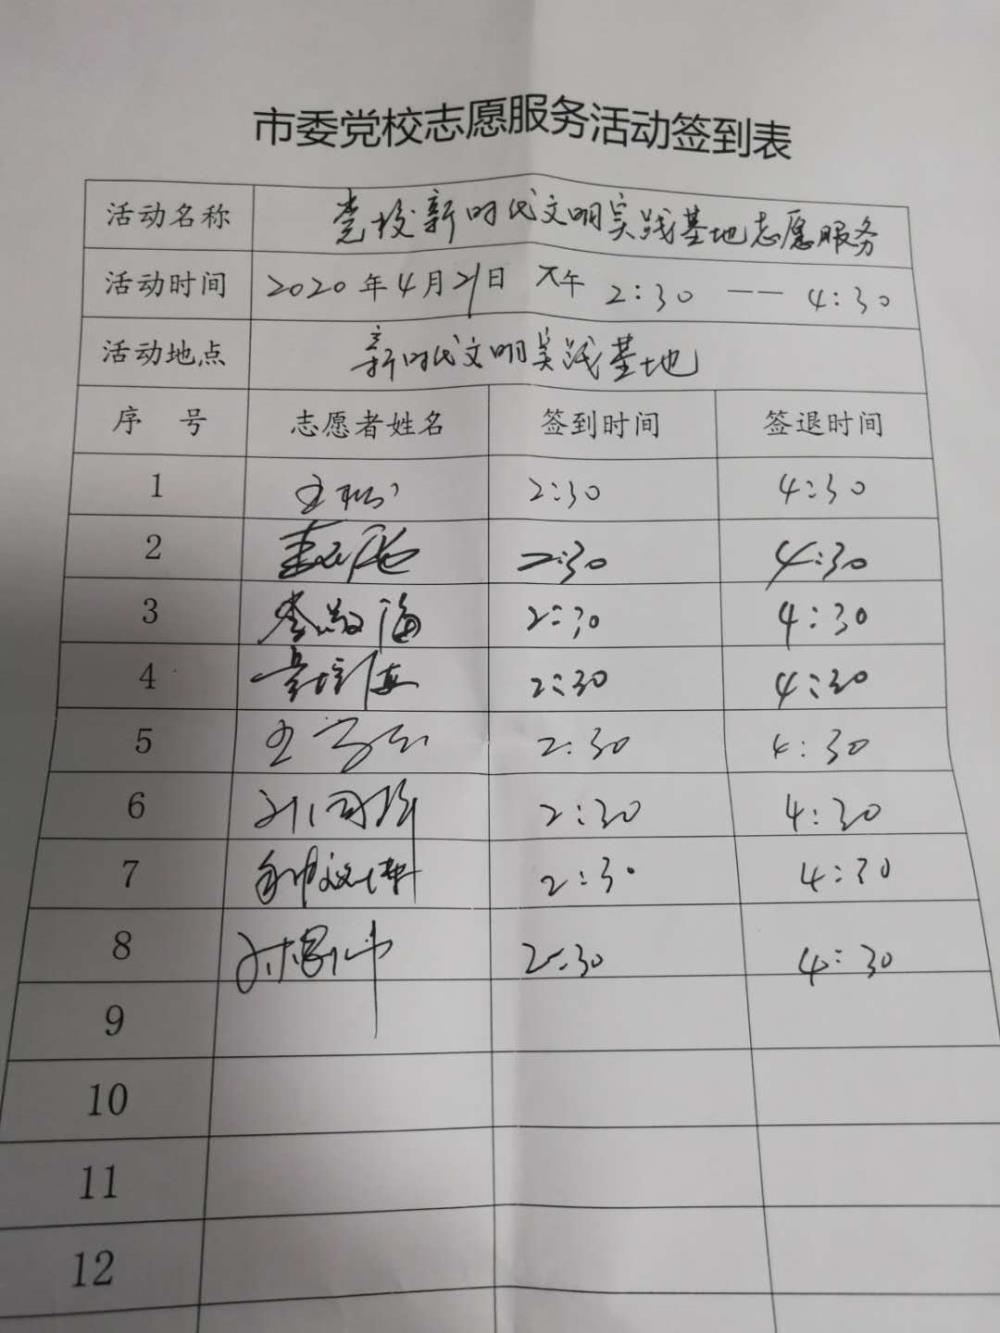 市委党校志愿服务活动签到表
活动名称 党校新时代文明实践基地志愿服务
活动时间 2020年4月21日 下午 2:30 —— 4:30
活动地点 新时代文明实践基地
序号 志愿者姓名 签到时间 签退时间
1 王 2:30 4:30
2 2:30 4:30
3 李 海 2:30 4:30
4 2:30 4:30
5 王 2:30 4:30
6 2:30 4:30
7 2:30 4:30
8 2:30 4:30
9
10
11
12